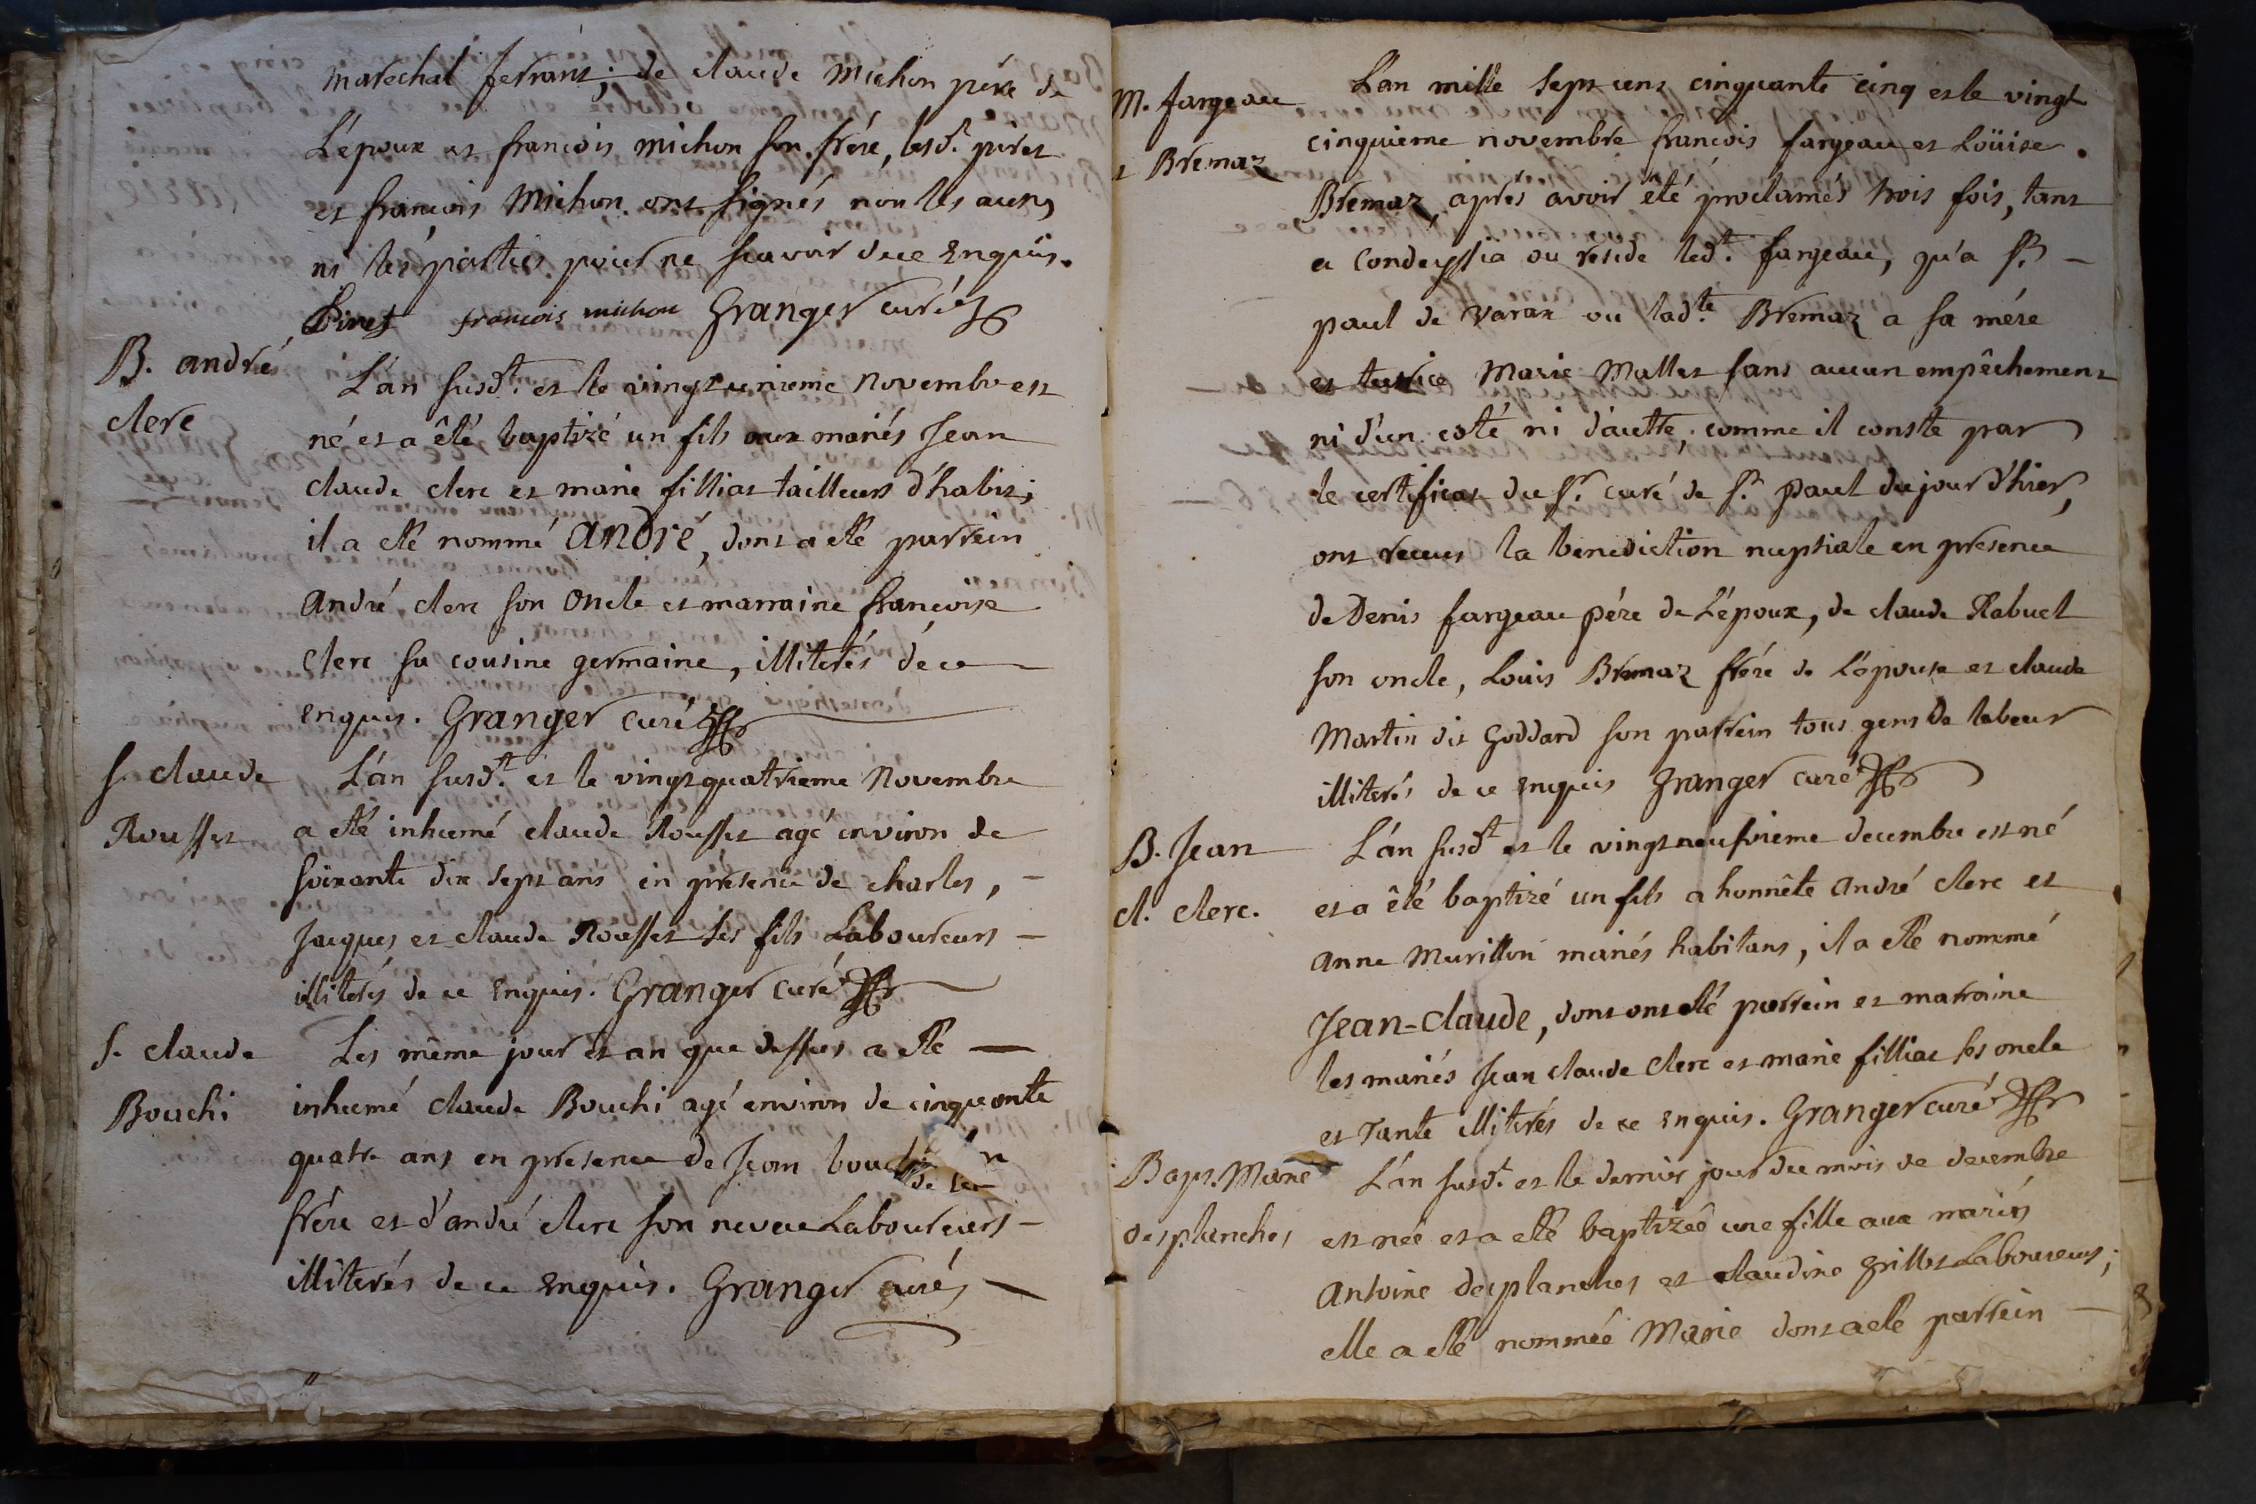 marechal ferrant; de claude Michon pére de
L'époux et francois Michon son frére, lesd. pires
et francois Michon ont signés non les aucuns
ni les parties pour ne scavoir de ce enquis.
Piret francois michon Granger curé
B. andré
clerc
L'an susdt. et le vingt unieme Novembre est
né et a êté baptizé un fils aux mariés Jean
claude clerc et marie filliat tailleurs d'habits;
il a eté nommé André, dont a eté parrein
André clerc son Oncle et marraine francoise
Clerc sa cousine germaine, illiterés de ce
enquis. Granger curé
S. claude
Rousset
L'an susdt. et le vingt quatrieme Novembre
a eté inhumé claude Rousset agé environ de
soixante dix sept ans en présence de charles,
Jacques et claude Rousset ses fils Laboureurs
illiterés de ce enquis. Granger curé
S. claude
Bouchi
Les même jour et an que dessus a eté
inhumé claude Bouchi agé environ de cinquante
quatre ans en presence de Jean
frére et d'andré clerc son neveu Laboureurs
illiterés de ce enquis. Granger curé
M. fargeau
et Bremaz
L'an mille sept cens cinquante cinq et le vingt
cinquieme novembre francois fargeau et Loüise
Bremaz, aprés avoir été proclamés trois fois, tant
a Condeyssia ou réside ledt. fargeau, qu'a St.
paul de Varax ou ladte. Bremaz a sa mére
et tutrice Marie Mullet sans aucun empêchement
ni d'un coté ni d'autre, comme il conste par
le certificat du Sr. curé de St. Paul du jour d'hier,
ont recues la benediction nuptiale en presence
de Denis fargeau pére de L'époux, de claude Rabuel
son oncle, Louis Bremaz frére de L'épouse et claude
Martin dit Goddard son parrein tous gens de labeur
illiterés de ce enquis Granger curé
B. Jean
cl. clerc.
L'an susdt et le vingt neufvieme decembre est né
et a êté baptizé un fils a honnête André clerc et
Anne Murillon mariés habitans, il a eté nommé
Jean-Claude, dont ont eté parrein et marraine
les mariés Jean claude Clerc et marie filliat ses oncle
et Tante illiterés de ce enquis. Granger curé
Bapt. Marie
desplanches
L'an susdt. et le dernier jour du mois de decembre
est née et a eté baptizée une fille aux mariés
Antoine desplanches et claudine grillet Laboureurs;
elle a eté nommée Marie dont a eté parrein